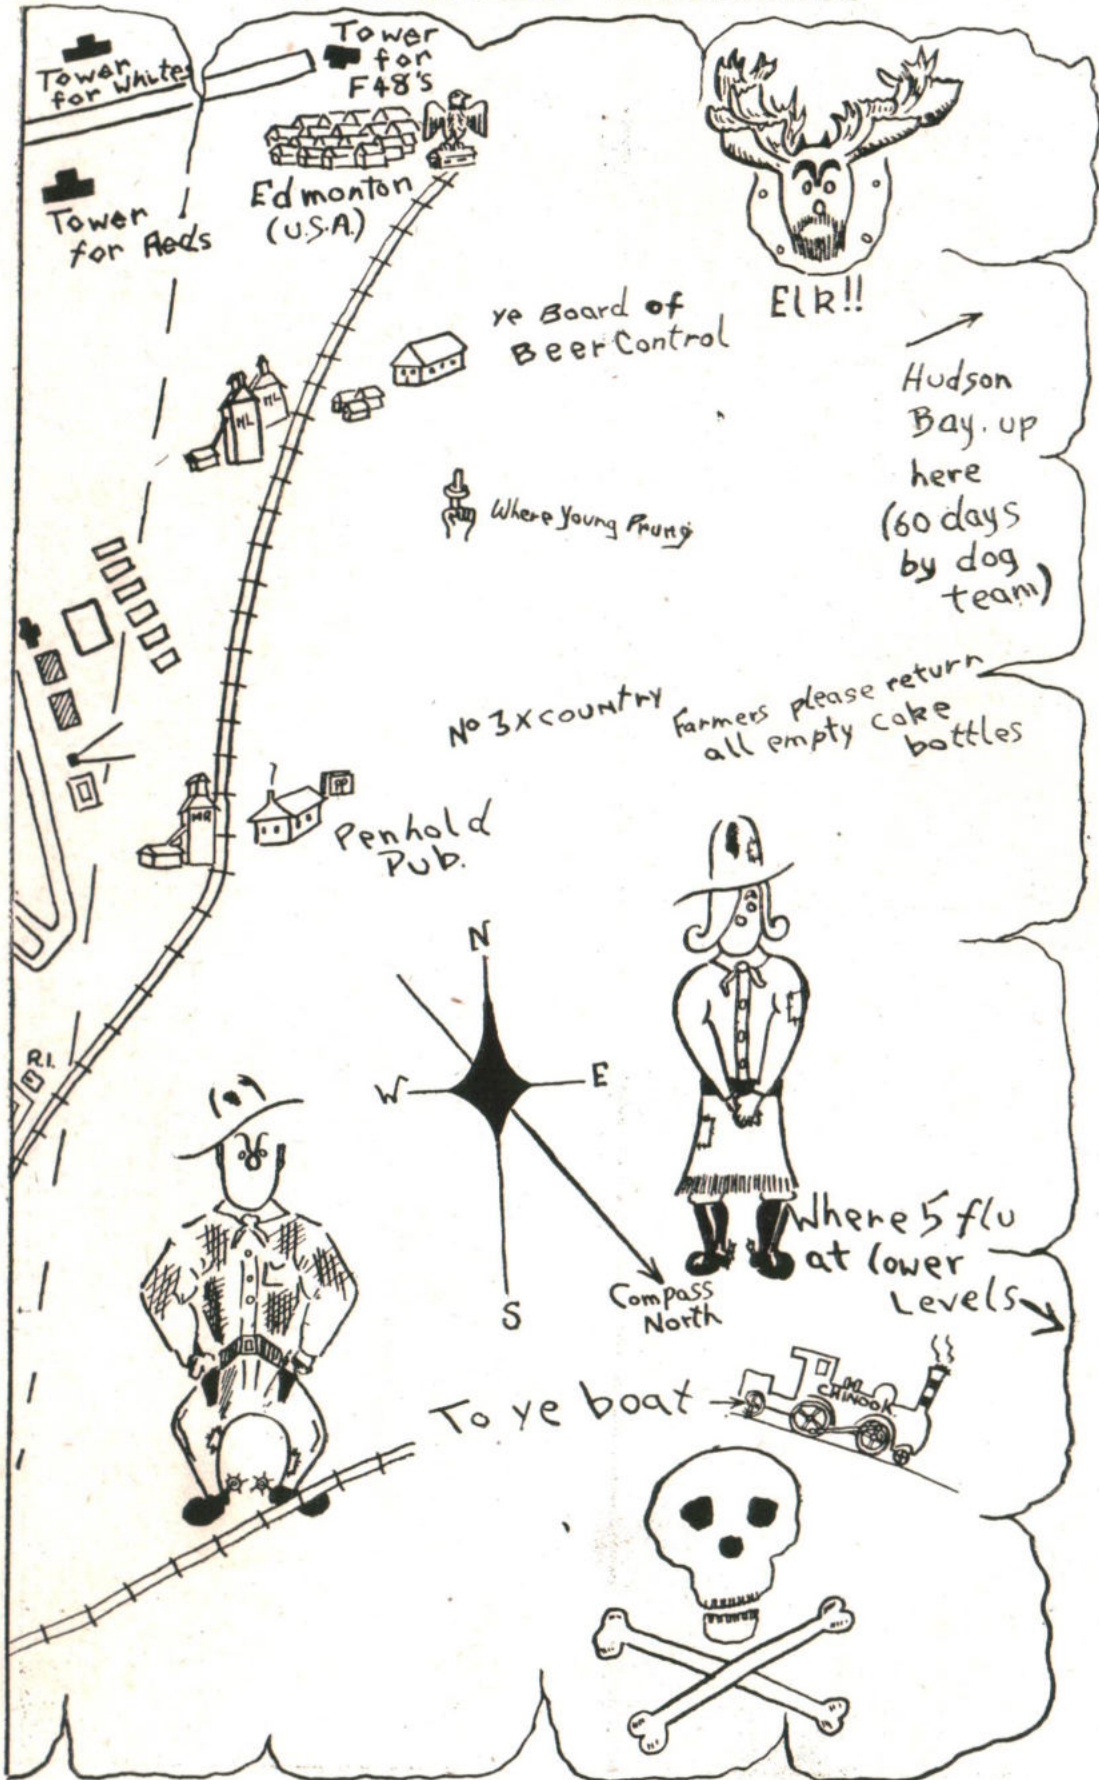 Tower
for Whites
Tower
for
F48's
Tower
for Reds
Edmonton
(U.S.A.)
Elk!!
ye Board of
Beer Control
Hudson
Bay. up
here
(60 days
by dog
team)
ML
ML
Where Young Prung
No 3 X country
Farmers please return
all empty coke
bottles
MR
PP
Penhold
Pub.
N
W
E
S
Compass
North
R.I.
Where 5 flu
at lower
Levels
To ye boat
CHINOOK